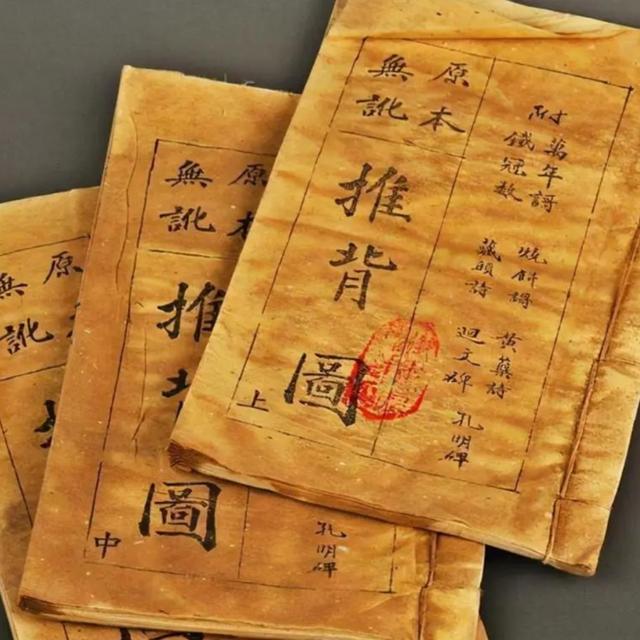 附
萬年謌
鐵冠數
燒餅謌
藏頭詩
黃蘗詩
迴文碑
孔明碑
原本
無訛
推背圖
上
孔明碑
原本
無訛
推背圖
中
原本
無訛